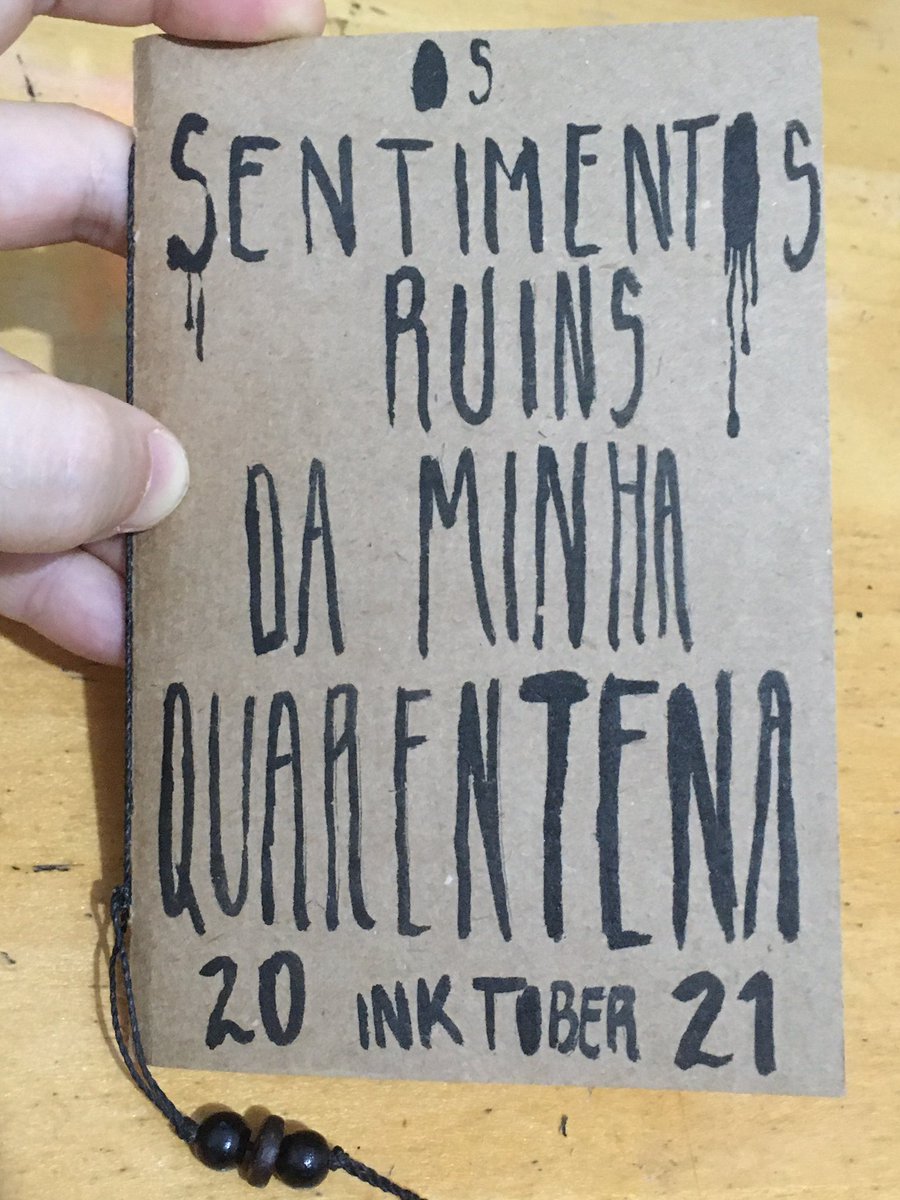 OS
SENTIMENTOS
RUINS
DA MINHA
QUARENTENA
20 INKTOBER 21